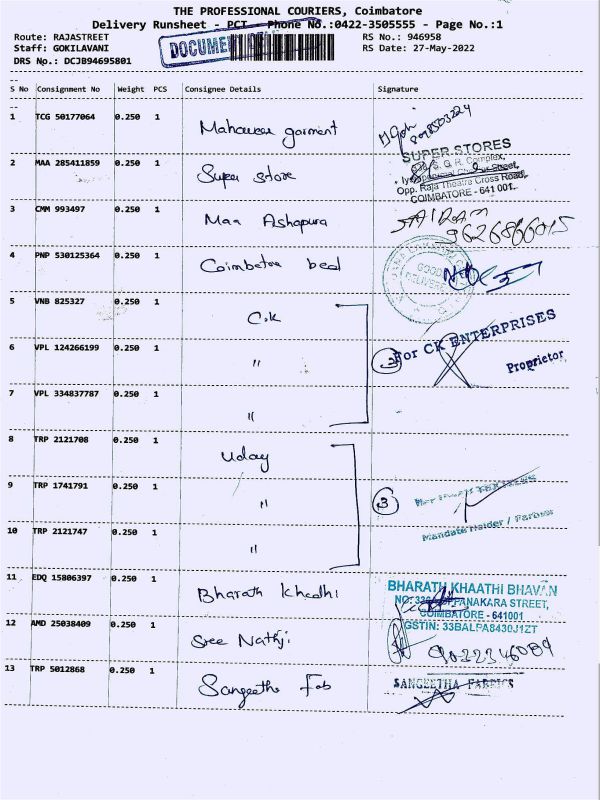 THE PROFESSIONAL COURIERS, Coimbatore
Delivery Runsheet - PCT - Phone No.:0422-3505555 - Page No.:1
Route: RAJASTREET RS No.: 946958
Staff: GOKILAVANI RS Date: 27-May-2022
DRS No.: DCJB94695801
DOCUME
S No Consignment No Weight PCS Consignee Details Signature
1 TCG 50177064 0.250 1 Mahaveer garment
2 MAA 285411859 0.250 1 Super store
SUPER STORES
Opp. Raja Theatre Cross Road,
COIMBATORE - 641 001.
3 CMM 993497 0.250 1 Maa Ashapura SAIRAM
9626866015
4 PNP 530125364 0.250 1 Coimbatore
GOOD
DELIVERE
5 VNB 825327 0.250 1 C.K
6 VPL 124266199 0.250 1 " For CK ENTERPRISES
Proprietor
7 VPL 334837787 0.250 1 "
8 TRP 2121708 0.250 1 Uday
9 TRP 1741791 0.250 1 " 3
Mandate Holder / Partner
10 TRP 2121747 0.250 1 "
11 EDQ 15806397 0.250 1 Bharath Khadhi
BHARATH KHAATHI BHAVAN
PANAKARA STREET,
COIMBATORE - 641001
GSTIN: 33BALPA8430J1ZT
12 AMD 25038409 0.250 1 Sree Nathji
13 TRP 5012868 0.250 1 Sangeetha Fab
SANGEETHA FABRICS